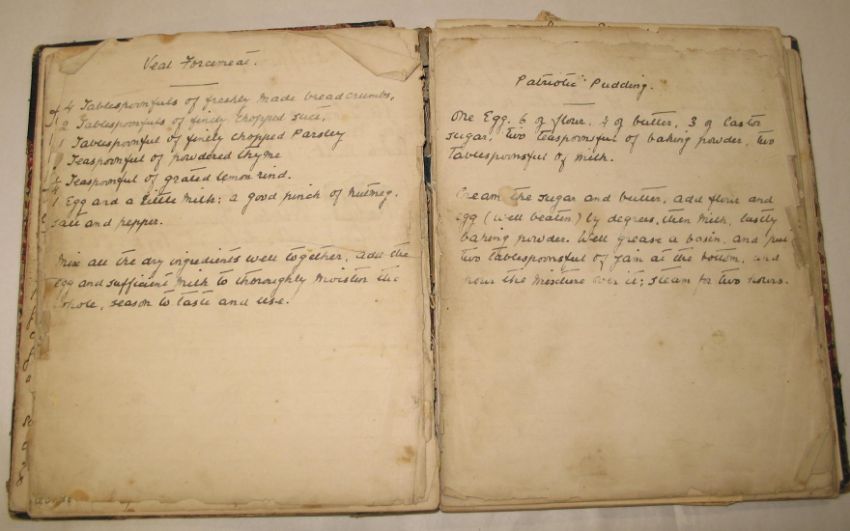 Veal Forcemeat.
4 Tablespoonfuls of freshly made breadcrumbs,
2 Tablespoonfuls of finely chopped suet,
1 Tablespoonful of finely chopped Parsley
Teaspoonful of powdered thyme
Teaspoonful of grated lemon rind.
1 Egg and a little milk: a good pinch of nutmeg.
salt and pepper.
Mix all the dry ingredients well together, add the
egg and sufficient milk to thoroughly moisten the
whole, season to taste and use.
Patriotic Pudding.
One Egg, 6 oz flour, 2 oz butter, 3 oz castor
sugar, two teaspoonsful of baking powder, two
tablespoonsful of milk.
Cream the sugar and butter, add flour and
egg (well beaten) by degrees, then milk, lastly
baking powder. Well grease a basin, and put
two tablespoonsful of jam at the bottom, and
pour the mixture over it; steam for two hours.